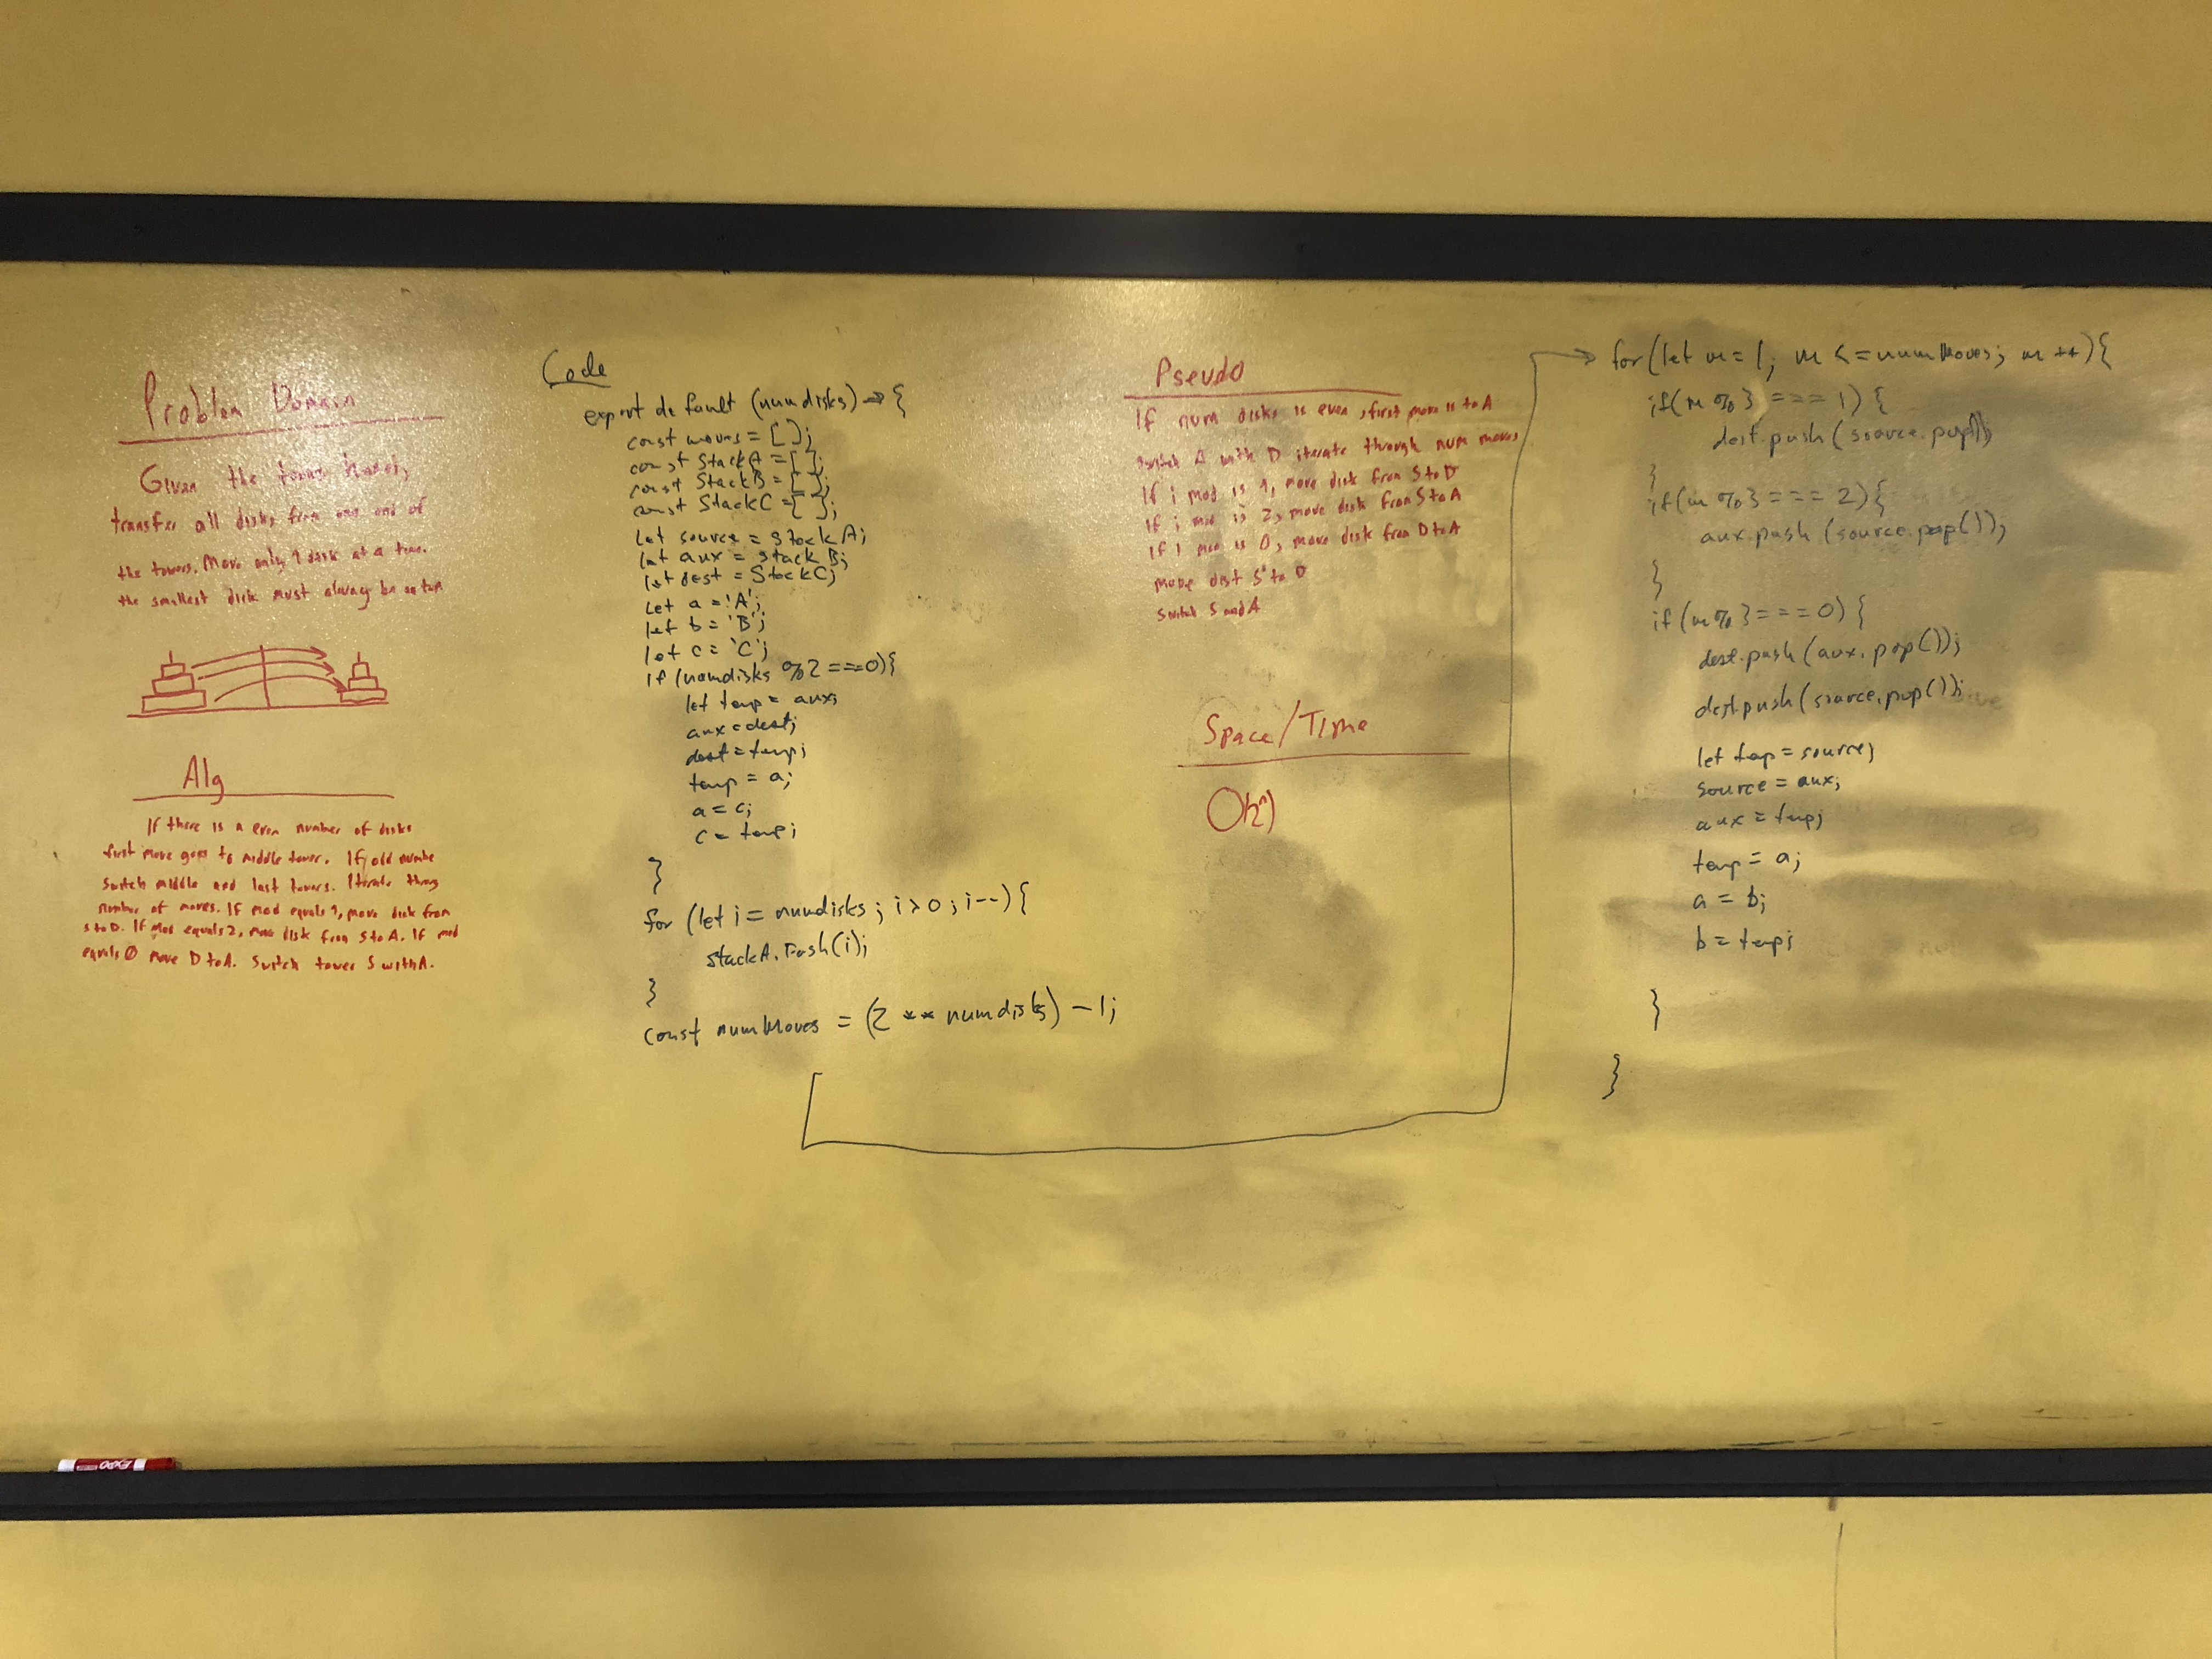 Problem Domain
Given the towers hanoi,
transfer all disks from one end of
the towers. Move only 1 disk at a time.
the smallest disk must always be on top
Alg
If there is a even number of disks
first move goes to middle tower. If odd numbe
switch middle and last towers. Iterate throug
number of moves. If mod equals 1, move disk from
S to D. If mod equals 2, move disk from S to A. If mod
equals 0 move D to A. Switch tower S with A.
Code
export default (numdisks) => {
const moves = [ ];
const StackA = [ ];
const StackB = [ ];
const StackC = [ ];
let source = stackA;
let aux = stackB;
let dest = StackC;
let a = 'A';
let b = 'B';
let c = 'C';
if (numdisks % 2 === 0) {
let temp = aux;
aux = dest;
dest = temp;
temp = a;
a = c;
c = temp;
}
for (let i = numdisks; i > 0; i--) {
stackA.push(i);
}
const numMoves = (2 ** numdisks) - 1;
Pseudo
If num disks is even, first move is to A
switch A with D iterate through num moves
If i mod is 1, move disk from S to D
If i mod is 2, move disk from S to A
If i mod is 0, move disk from D to A
move dist S to D
Switch S and A
Space/Time
O(2^n)
for (let m = 1; m <= numMoves; m++) {
if (m % 3 === 1) {
dest.push (source.pop());
}
if (m % 3 === 2) {
aux.push (source.pop());
}
if (m % 3 === 0) {
dest.push (aux.pop());
dest.push (source.pop());
let temp = source;
source = aux;
aux = temp;
temp = a;
a = b;
b = temp;
}
}
EXPO